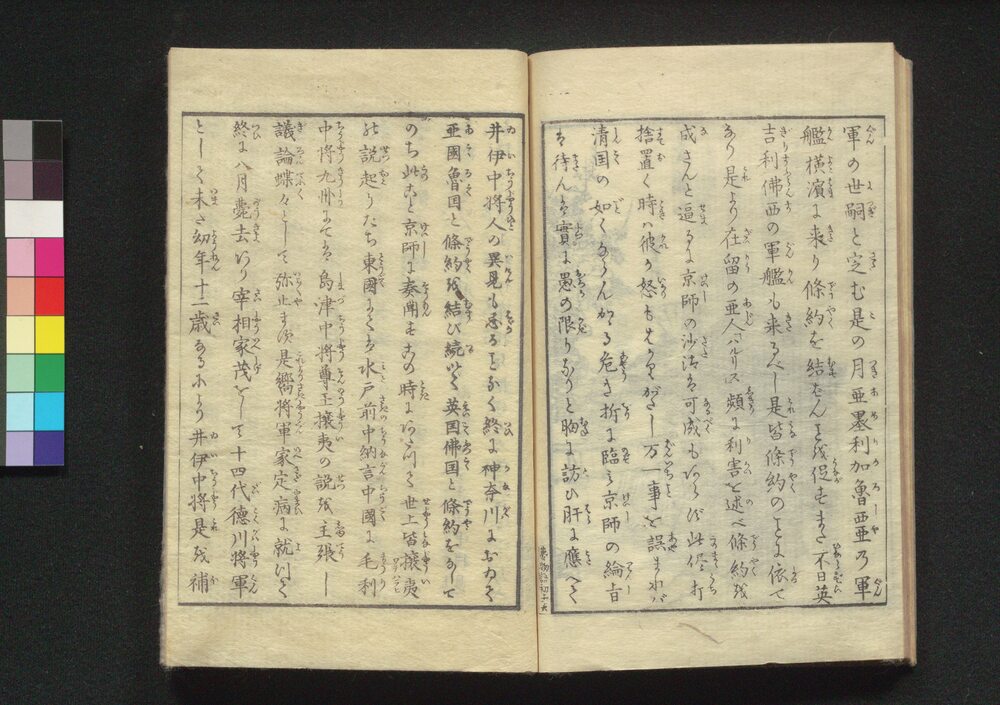 軍の世嗣と定む是の月亜墨利加魯西亜の軍
艦横濱に来り條約を結ばんとを促すまた不日英
吉利佛西の軍艦も来るべし是皆條約のことに依て
なり是より在留の亜人ハルリス頻に利害を述べ條約を
成さんと逼るに京師の沙汰を可成もあらず此侭打
捨置く時ハ彼が怒もはかりがたし万一事を誤まれバ
清国の如くならんかゝる危き折に臨み京師の綸旨
を待んは實に愚の限りなりと胸に訪ひ肝に應へて
井伊中将人の異見も忌るゝとなく終に神奈川におゐて
亜國魯国と條約を結び続いて英国佛国と條約をなして
のち此よし京師に奏聞す此時にあたつて世上皆攘夷
の説起りうち東國にては水戸前中納言中國に毛利
中将九州にては島津中将尊王攘夷の説を主張し
議論蝶々として弥止まず是嚮将軍家定病に就いて
終に八月薨去なり宰相家茂をして十四代徳川将軍
として未だ幼年十二歳なるにより井伊中将是を補